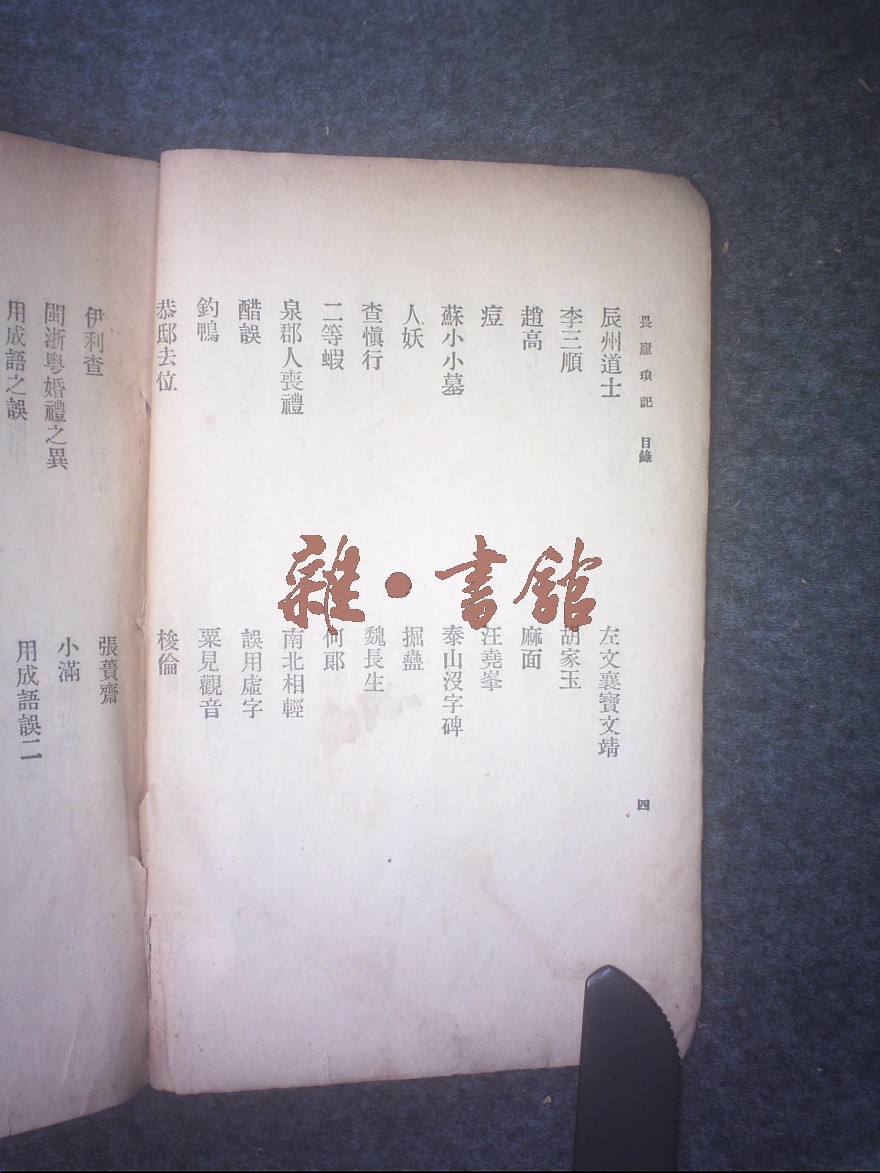 畏廬瑣記 目錄 四
辰州道士 左文襄寶文靖
李三順 胡家玉
趙高 麻面
痘 汪堯峯
蘇小小墓 泰山沒字碑
人妖 掘蠱
查愼行 魏長生
二等蝦 何郞
泉郡人喪禮 南北相輕
醋誤 誤用虛字
釣鴨 粟見觀音
恭邸去位 梭倫
伊利查 張蕢齋
閩浙粤婚禮之異 小滿
用成語之誤 用成語誤二
雜·書館